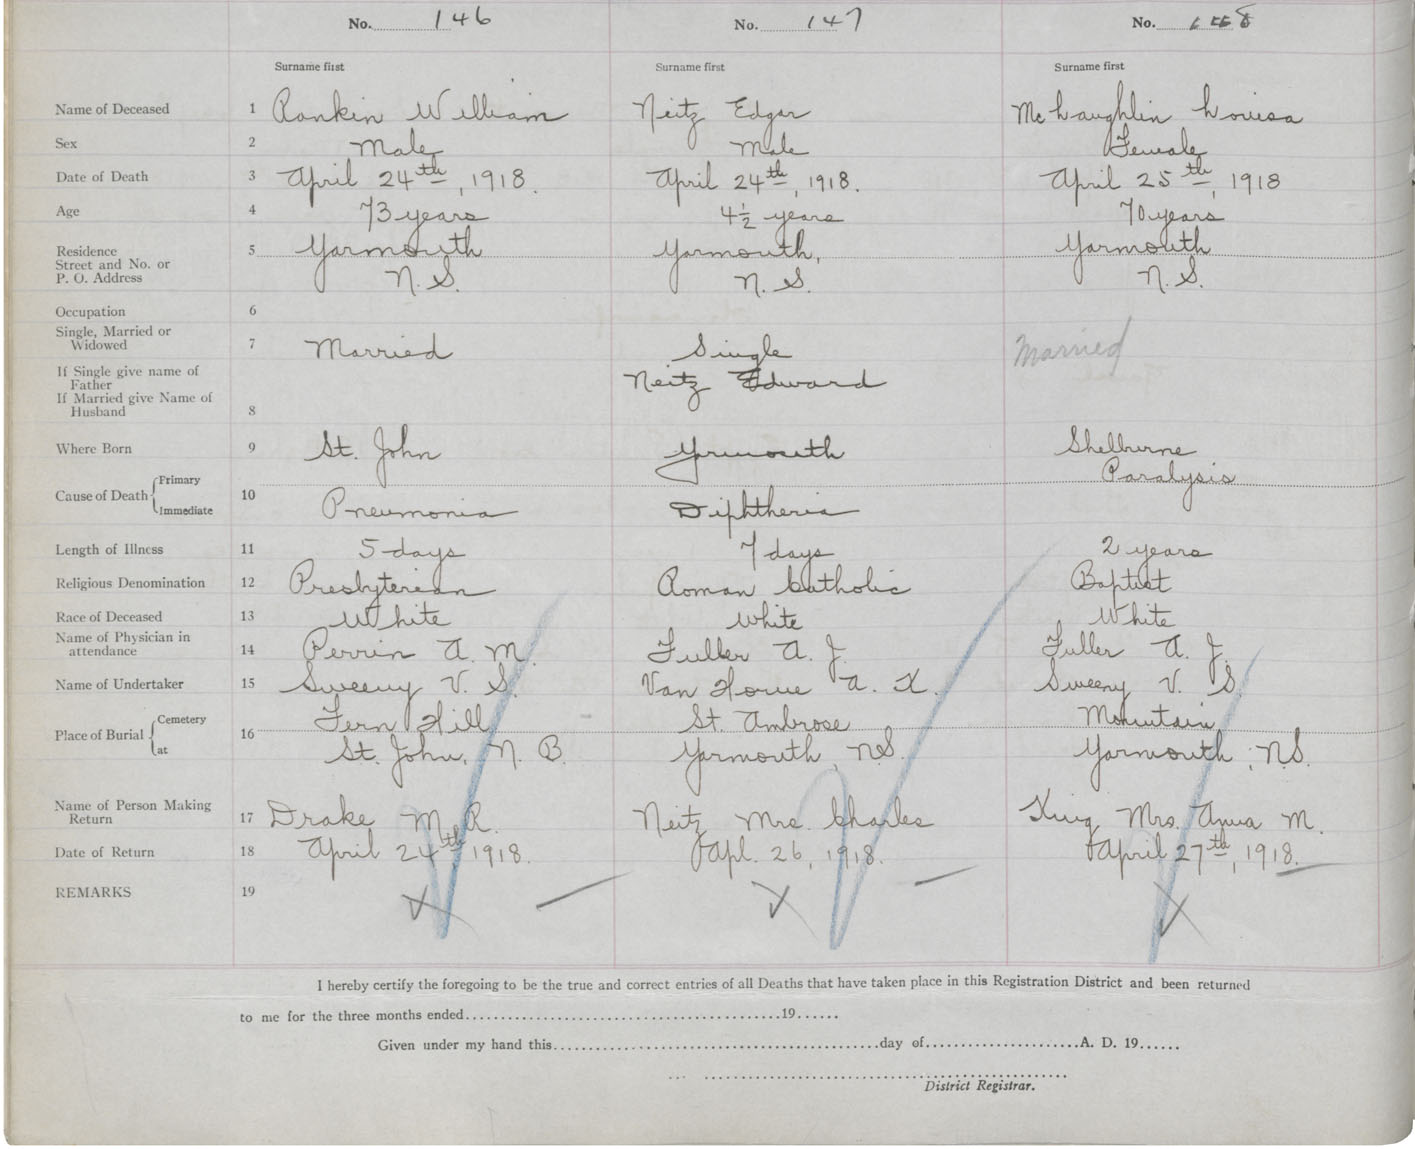 No. 146 No. 147 No. 148
Surname first Surname first Surname first
Name of Deceased 1 Rankin William Neitz Edgar McLaughlin Louisa
Sex 2 Male Male Female
Date of Death 3 April 24th, 1918. April 24th, 1918. April 25th, 1918
Age 4 73 years 4½ years 70 years
Residence 5 Yarmouth Yarmouth, Yarmouth
Street and No. or
P. O. Address N. S. N. S. N. S.
Occupation 6
Single, Married or
Widowed 7 Married Single Married
If Single give name of
Father Neitz Edward
If Married give Name of
Husband 8
Where Born 9 St. John Yarmouth Shelburne
Cause of Death Primary Paralysis
10
Immediate Pneumonia Diphtheria
Length of Illness 11 5 days 7 days 2 years
Religious Denomination 12 Presbyterian Roman Catholic Baptist
Race of Deceased 13 White White White
Name of Physician in
attendance 14 Perrin A. M. Fuller A. J. Fuller A. J.
Name of Undertaker 15 Sweeny V. S. Van Horne A. K. Sweeny V. S
Place of Burial Cemetery Fern Hill St. Ambrose Mountain
16
at St. John, N. B. Yarmouth, N.S. Yarmouth, N.S.
Name of Person Making
Return 17 Drake M. R. Neitz Mrs. Charles King Mrs. Anna M.
Date of Return 18 April 24th 1918. Apl. 26, 1918. April 27th, 1918.
REMARKS 19
I hereby certify the foregoing to be the true and correct entries of all Deaths that have taken place in this Registration District and been returned
to me for the three months ended 19
Given under my hand this day of A. D. 19
District Registrar.